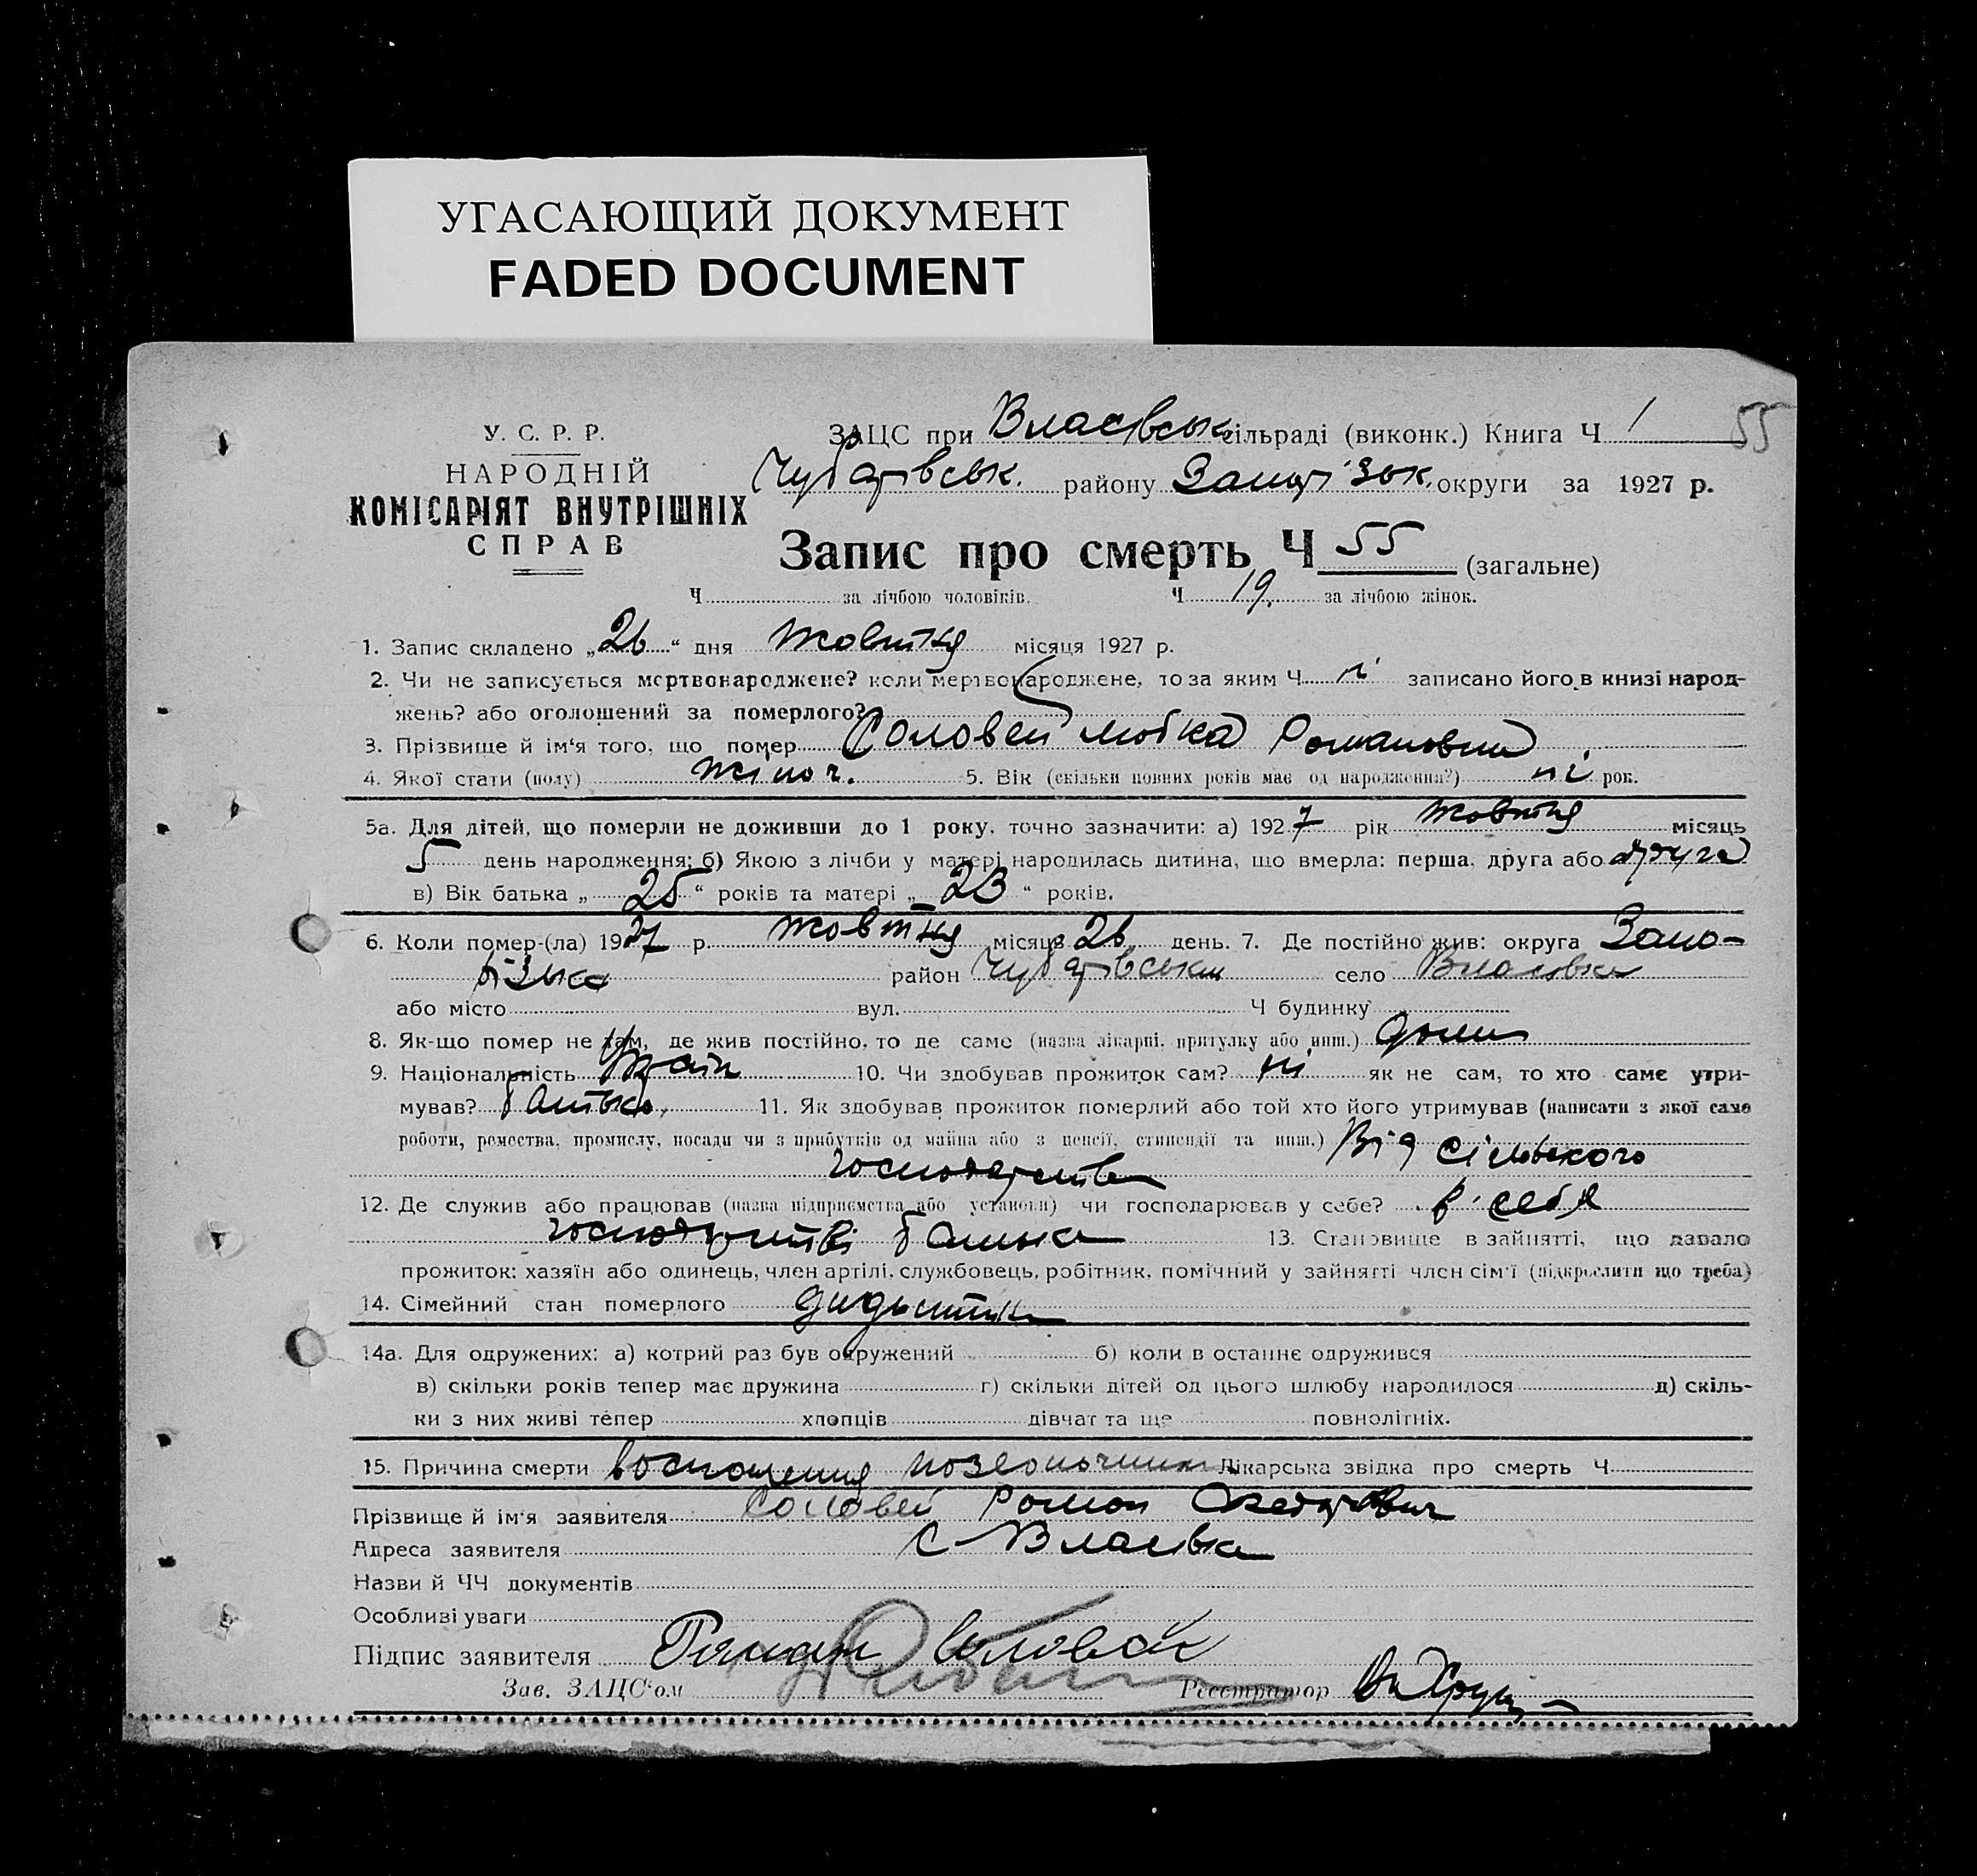 УГАСАЮЩИЙ ДОКУМЕНТ
FADED DOCUMENT
У. С. Р. Р.
НАРОДНІЙ
КОМІСАРІЯТ ВНУТРІШНІХ
СПРАВ
ЗАЦС при Власівськ. сільраді (виконк.) Книга Ч 1 55
Чубарівськ. району Запорізьк. округи за 1927 р.
Запис про смерть Ч 55 (загальне)
Ч за лічбою чоловіків. Ч 19. за лічбою жінок.
1. Запис складено „26“ дня Жовтня місяця 1927 р.
2. Чи не записується мертвонароджене? коли мертвонароджене, то за яким Ч ні записано його в книзі народ-
жень? або оголошений за померлого?
3. Прізвище й ім‘я того, що помер Соловей Любка Романовна
4. Якої стати (полу) жіноч. 5. Вік (скільки повних років має од народження?) ні рок.
5а. Для дітей, що померли не доживши до 1 року, точно зазначити: а) 1927 рік Жовтня місяць
5 день народження; б) Якою з лічби у матері народилась дитина, що вмерла: перша, друга або друга
в) Вік батька „25“ років та матері „23“ років.
6. Коли помер-(ла) 1927 р. Жовтня місяця 26 день. 7. Де постійно жив: округа Запо-
різька район Чубарівськи село Власовка
або місто вул. Ч будинку
8. Як-що помер не там, де жив постійно, то де саме (назва лікарні, притулку або инш.) дома
9. Національність Україн 10. Чи здобував прожиток сам? ні як не сам, то хто саме утри-
мував? батько, 11. Як здобував прожиток померлий або той хто його утримував (написати з якої саме
роботи, ремества, промислу, посади чи з прибутків од майна або з пенсії, стипендії та инш.) Від сільського
господарства
12. Де служив або працював (назва підприємства або установи) чи господарював у себе? в себя
господарстві батька 13. Становище в зайнятті, що давало
прожиток: хазяїн або одинець, член артілі, службовець, робітник, помічний у зайнятті член сім‘ї (підкреслити що треба)
14. Сімейний стан померлого
14а. Для одружених: а) котрий раз був одружений б) коли в останнє одружився
в) скільки років тепер має дружина г) скільки дітей од цього шлюбу народилося д) скіль-
ки з них живі тепер хлопців дівчат та ще повнолітніх.
15. Причина смерти воспаления Лікарська звідка про смерть Ч
Прізвище й ім‘я заявителя Соловей Роман
Адреса заявителя с Власівка
Назви й ЧЧ документів
Особливі уваги
Підпис заявителя Роман Соловей
Зав. ЗАЦС‘ом Реєстратор